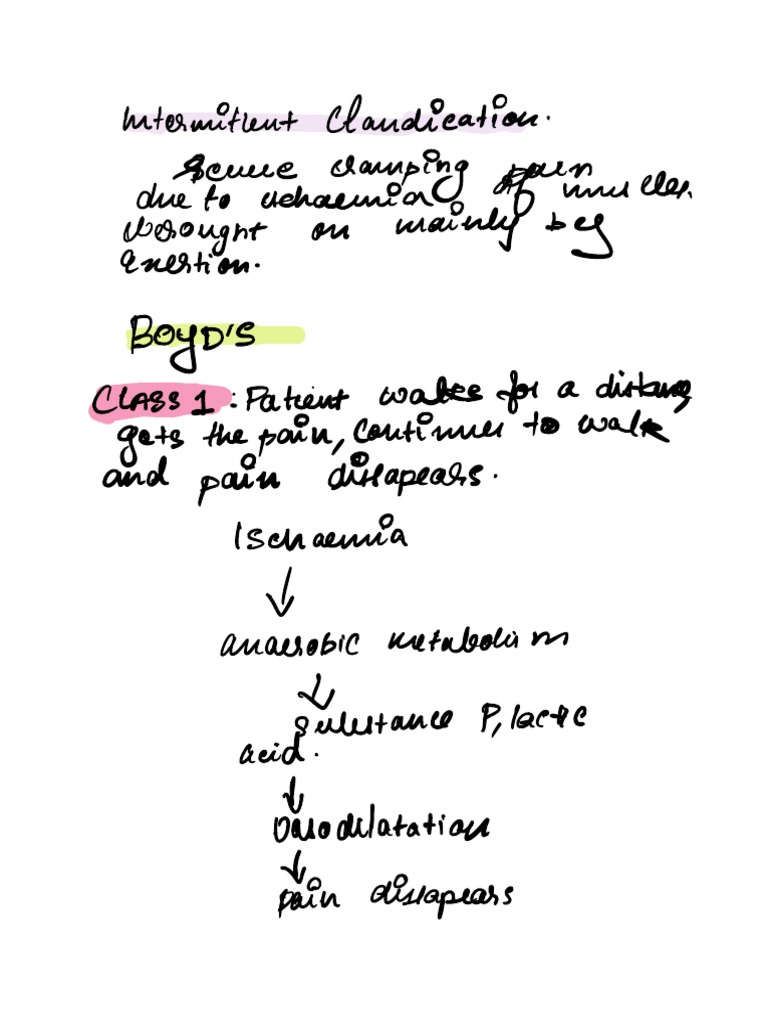 Intermittent Claudication.
Severe cramping pain
due to ischaemia of muscles
brought on mainly by
exertion.
BOYD'S
CLASS 1: Patient walks for a distance
gets the pain, continues to walk
and pain dissapears.
Ischaemia
↓
anaerobic metabolism
↓
Substance P, lactic
acid.
↓
Vasodilatation
↓
pain dissapears